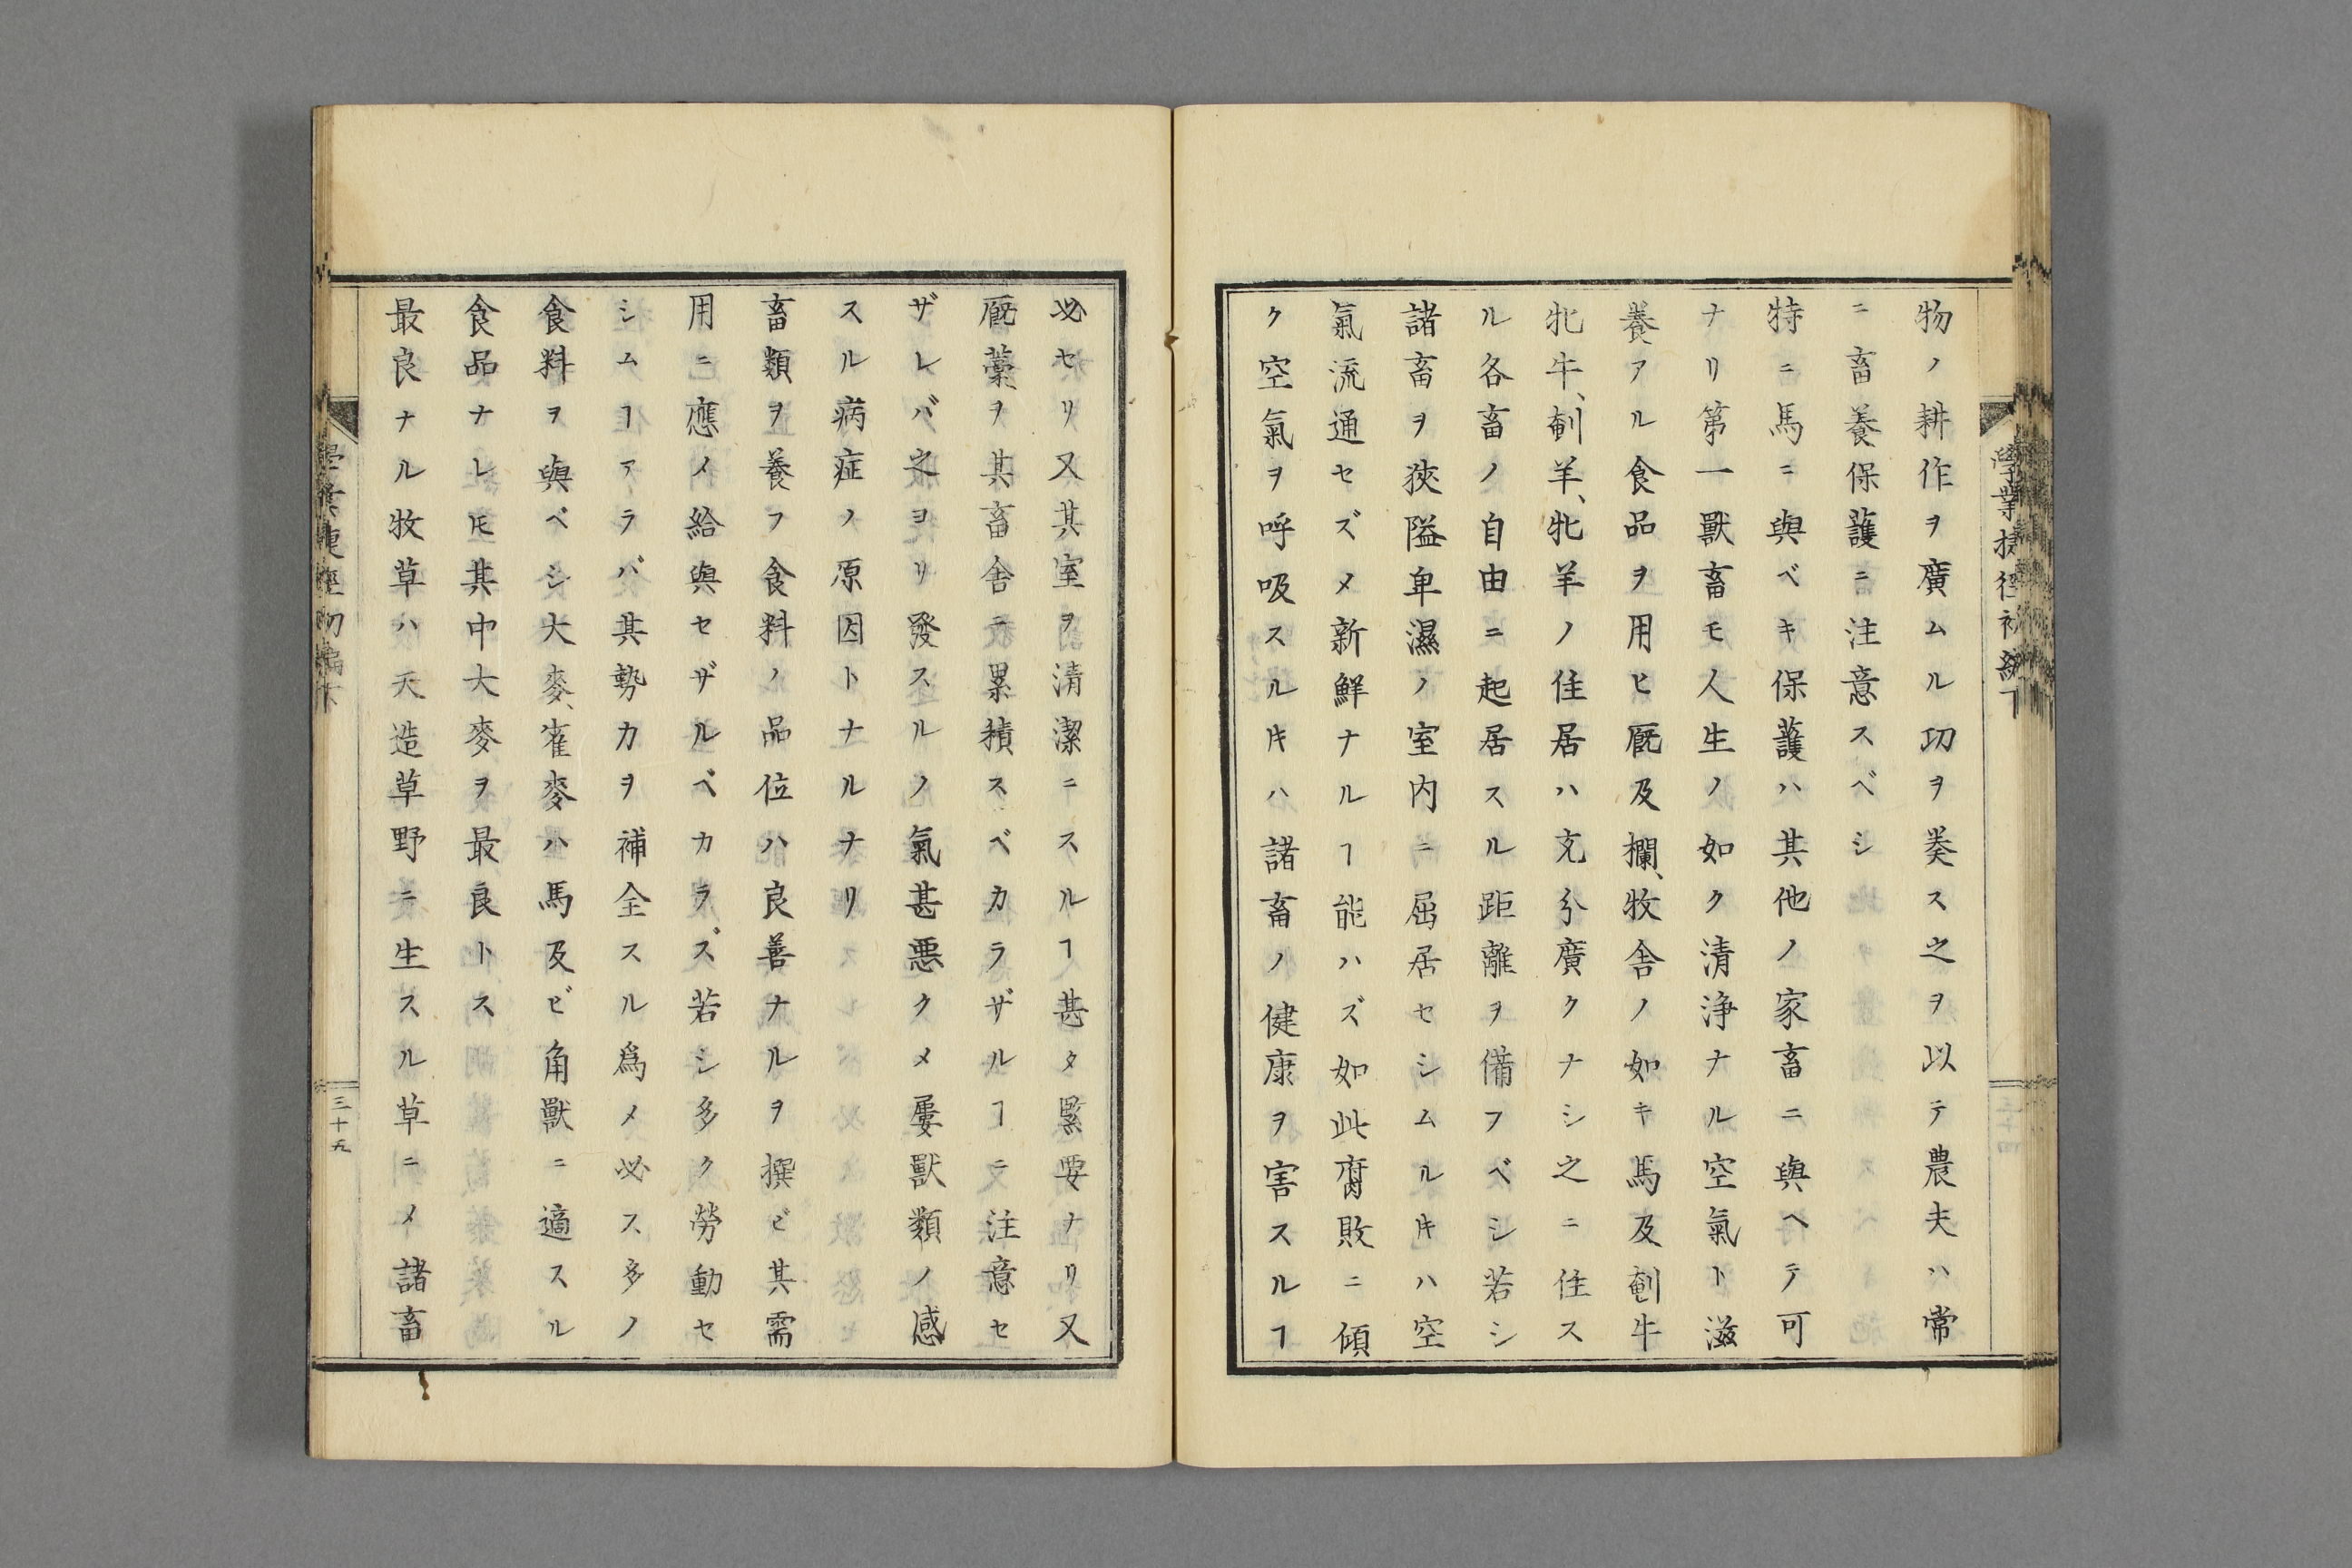 物ノ耕作ヲ廣ムル功ヲ奏ス之ヲ以テ農夫ハ常
ニ畜養保護ニ注意スベシ
特ニ馬ニ與ベキ保護ハ其他ノ家畜ニ與ヘテ可
ナリ第一獸畜モ人生ノ如ク清浄ナル空氣ト滋
養アル食品ヲ用ヒ厩及欄、牧舎ノ如キ馬及剦牛
牝牛、剦羊、牝羊ノ住居ハ充分廣クナシ之ニ住ス
ル各畜ノ自由ニ起居スル距離ヲ備フベシ若シ
諸畜ヲ狹隘卑濕ノ室内ニ屈居セシムルキハ空
氣流通セズメ新鮮ナルヿ能ハズ如此腐敗ニ傾
ク空氣ヲ呼吸スルキハ諸畜ノ健康ヲ害スルヿ
必セリ又其室ヲ清潔ニスルヿ甚タ緊要ナリ又
厩藁ヲ其畜舎ニ累積スベカラザルヿニ注意セ
ザレバ之ヨリ發スルノ氣甚悪クメ屢獸類ノ感
スル病症ノ原因トナルナリ
畜類ヲ養フ食料ノ品位ハ良善ナルヲ撰ビ其需
用ニ應ノ給與セザルベカラズ若シ多ク勞動セ
シムヿアラバ其勢力ヲ補全スル爲メ必ス多ノ
食料ヲ與ベシ大麥、雀麥ハ馬及ビ角獸ニ適スル
食品ナレ𪜈其中大麥ヲ最良トス
最良ナル牧草ハ天造草野ニ生スル草ニメ諸畜
三十五